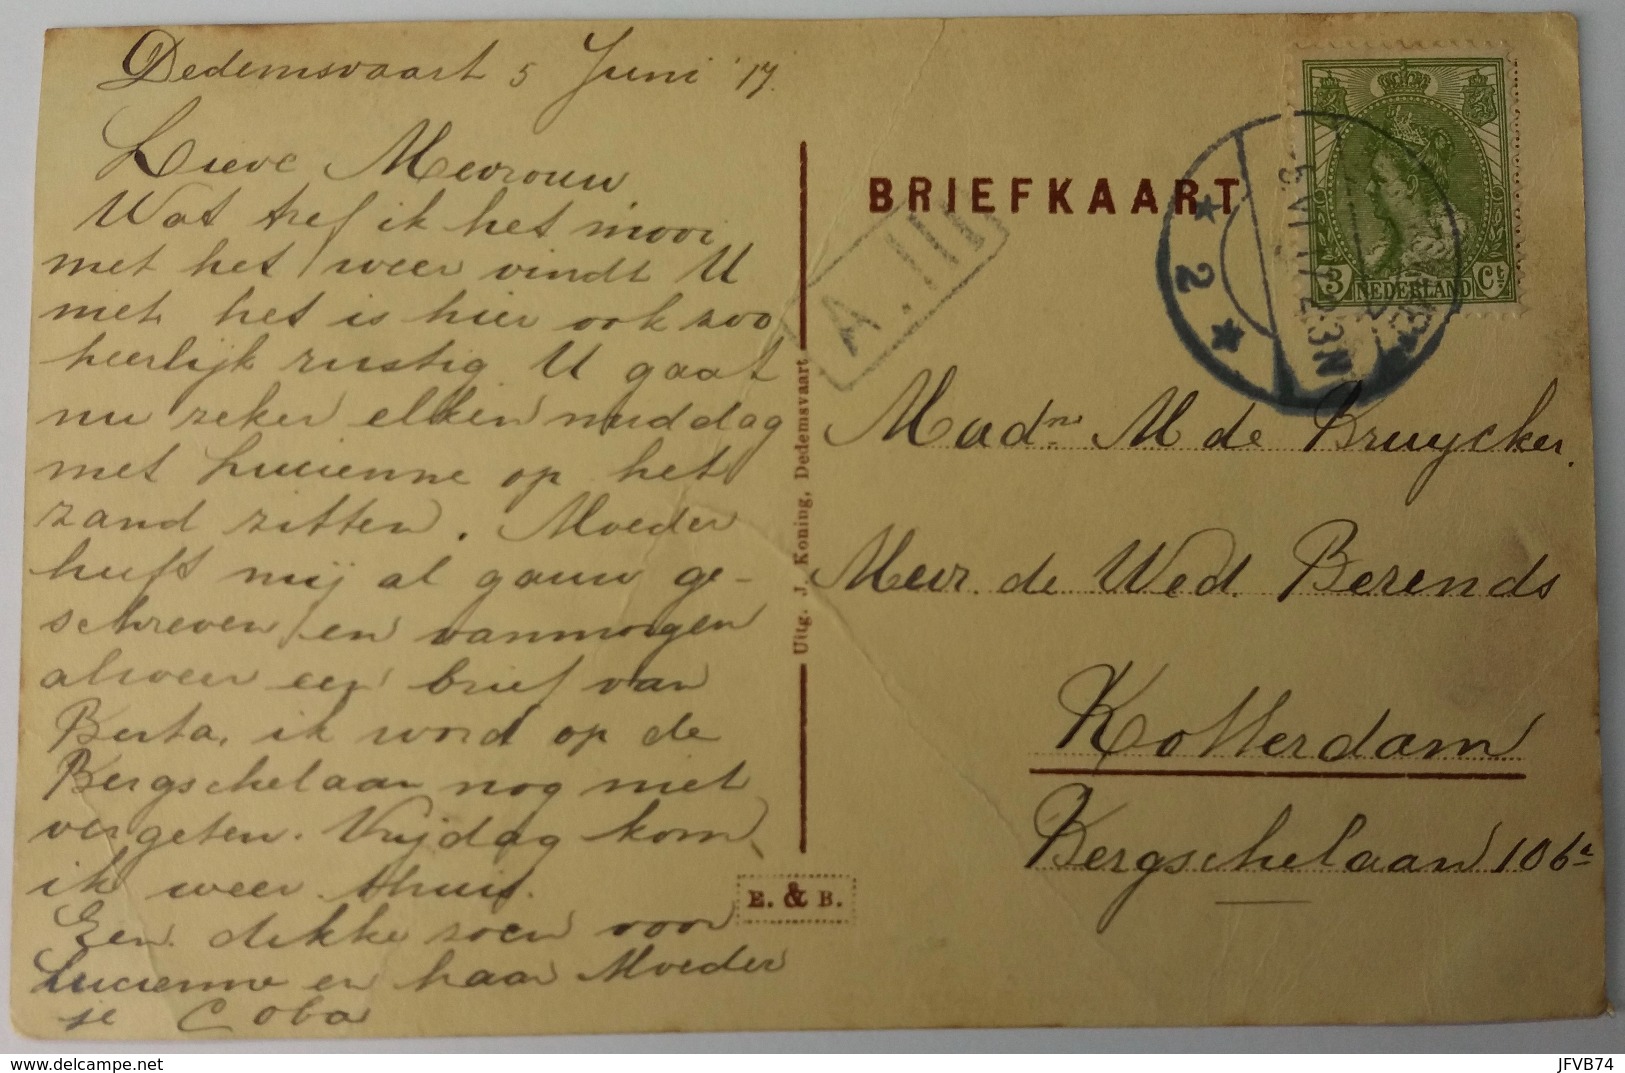 Dedemsvaart 5 Juni '17.
Lieve Mevrouw
Wat tref ik het mooi
met het weer vindt U
met het is hier ook zoo
heerlijk rustig U gaat
nu zeker elken middag
met Lucienne op het
zand zitten. Moeder
heeft mij al gauw ge-
schreven en vanmorgen
alweer een brief van
Berta, ik word op de
Bergschelaan nog niet
vergeten. Vrijdag kom
ik weer thuis.
Een dikke zoen voor
Lucienne en haar Moeder
je Coba
Uitg. J. Koning, Dedemsvaart
E. & B.
BRIEFKAART
A.III
2
5.VI.17 2-3N
3 NEDERLAND Ct
Madme M de Bruycker.
Mevr. de Wed. Berends
Rotterdam
Bergschelaan 106a
delcampe.net
JFVB74